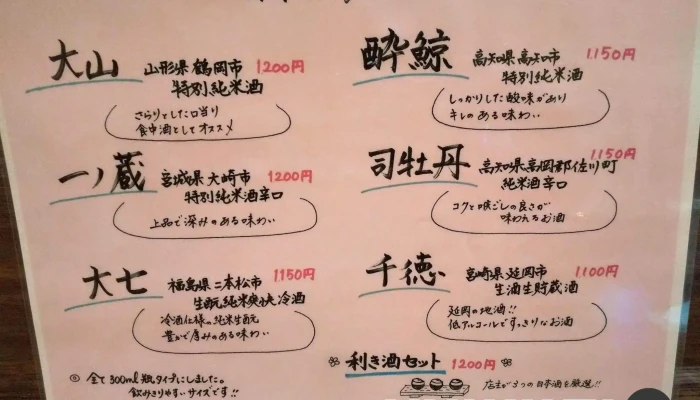 大山 山形県鶴岡市 1200円
特別純米酒
さらりとした口当り
食中酒としてオススメ
一ノ蔵 宮城県大崎市 1200円
特別純米酒辛口
上品で深みのある味わい
大七 福島県二本松市 1150円
生酛純米爽快冷酒
冷酒仕様の純米生酛
豊かで厚みのある味わい
◎ 全て300ml瓶タイプにしました。
飲みきりやすいサイズです!!
酔鯨 高知県高知市 1,150円
特別純米酒
しっかりした酸味があり
キレのある味わい
司牡丹 高知県高岡郡佐川町 1150円
純米酒辛口
コクと喉ごしの良さが
味わえるお酒
千徳 宮崎県延岡市 1,100円
生酒生貯蔵酒
延岡の地酒!!
低アルコールですっきりなお酒
利き酒セット 1200円
店主が3つの日本酒を厳選!!